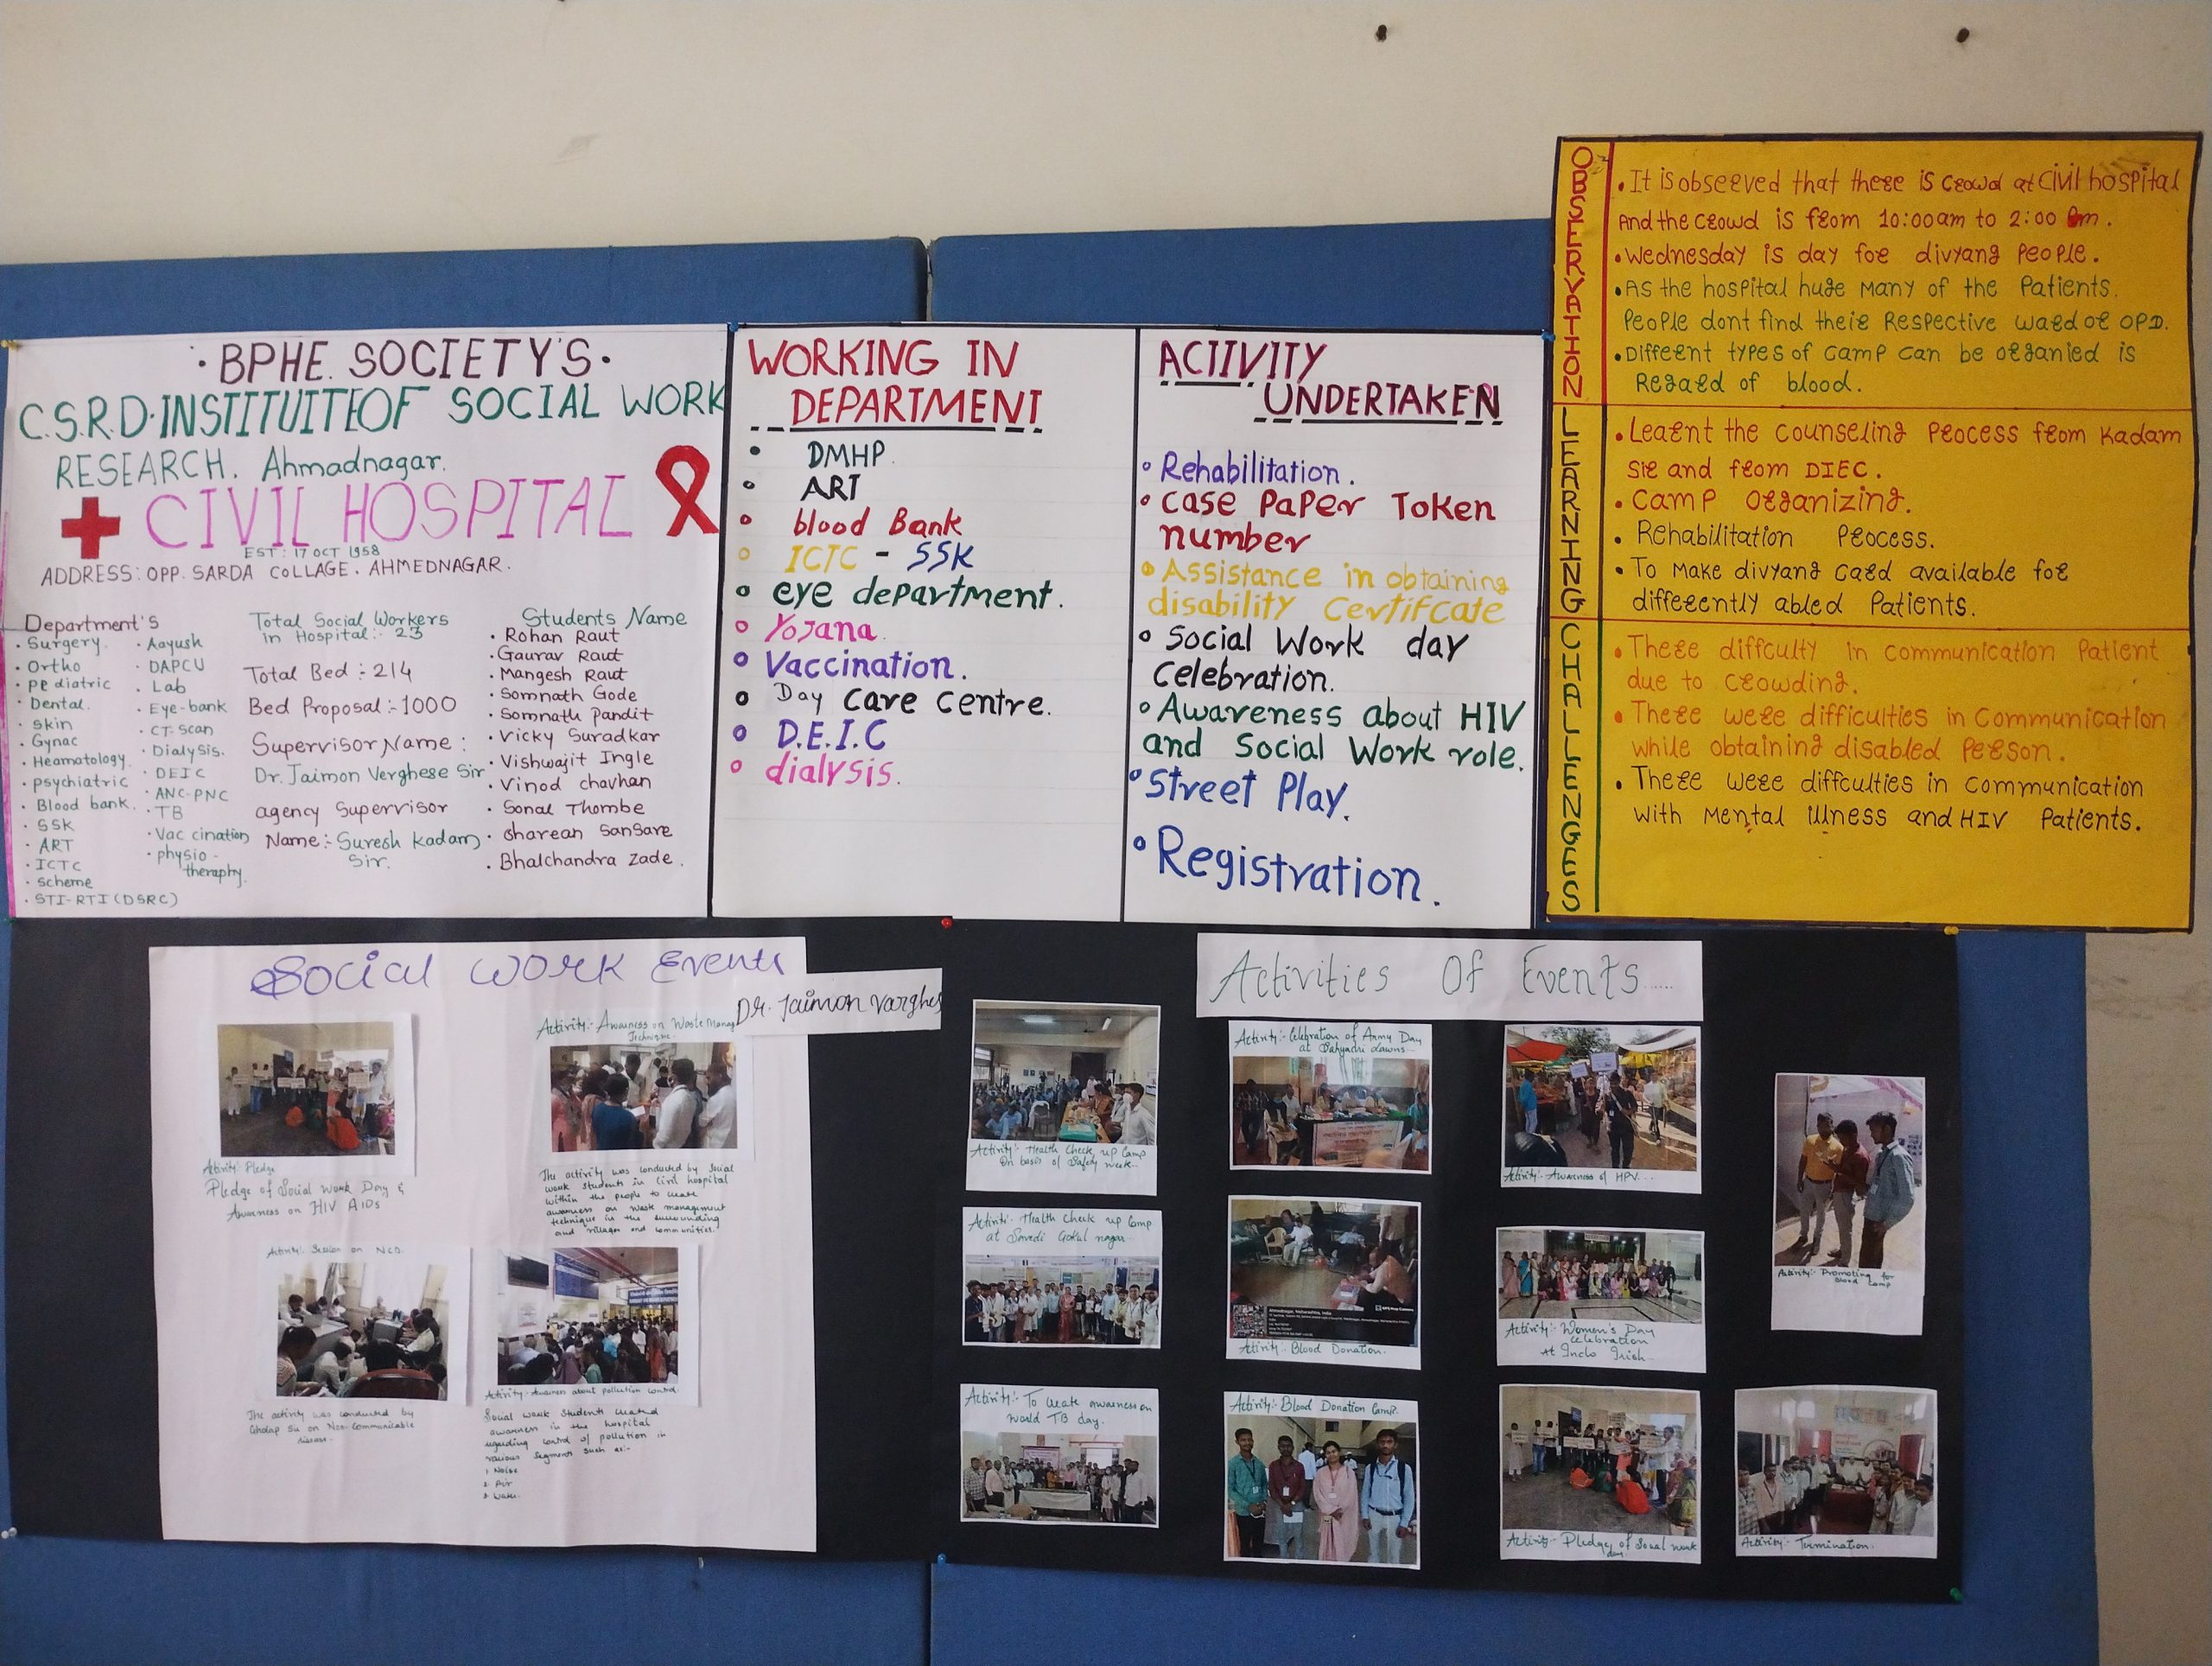 · BPHE. SOCIETY'S ·
C.S.R.D. INSTITUITEOF SOCIAL WORK
RESEARCH. Ahmadnagar.
CIVIL HOSPITAL
EST: 17 OCT 1958
ADDRESS: OPP. SARDA COLLAGE. AHMEDNAGAR.
Department's
· Surgery.
· Ortho
· pediatric
· Dental.
· skin
· Gynac
· Heamatology.
· psychiatric
· Blood bank.
· SSK
· ART
· ICTC
· scheme
· STI-RTI (DSRC)
· Aayush
· DAPCU
· Lab
· Eye-bank
· CT. scan
· Dialysis.
· DEIC
· ANC-PNC
· TB
· Vaccination
· physio-
theraphy.
Total Social Workers
in Hospital:- 23
Total Bed :- 214
Bed Proposal :- 1000
Supervisor Name :
Dr. Jaimon Verghese Sir
agency Supervisor
Name:- Suresh Kadam
Sir.
Students Name
· Rohan Raut
· Gaurav Raut
· Mangesh Raut
· Somnath Gode
· Somnath Pandit
· Vicky Suradkar
· Vishwajit Ingle
· Vinod chavhan
· Sonal Thombe
· Sharean Sansare
· Bhalchandra Zade.
WORKING IN
DEPARTMENT
• DMHP.
• ART
• blood Bank
• ICTC - SSK
• eye department.
• Yojana.
• Vaccination.
• Day care centre.
• D.E.I.C
• dialysis.
ACTIVITY
UNDERTAKEN
• Rehabilitation.
• case paper Token
number
• Assistance in obtaining
disability Certifcate
• Social Work day
celebration.
• Awareness about HIV
and Social Work role.
• Street Play.
• Registration.
OBSERVATION
• It is observed that there is crowd at civil hospital
And the crowd is from 10:00am to 2:00 pm.
• Wednesday is day for divyang people.
• As the hospital huge many of the patients.
people dont find their Respective ward or OPD.
• Different types of camp can be organied is
Regard of blood.
LEARNING
• Learnt the counseling process from Kadam
sir and from DIEC.
• Camp organizing.
• Rehabilitation process.
• To make divyang card available for
differently abled patients.
CHALLENGES
• There diffculty in communication patient
due to crowding.
• There were difficulties in communication
while obtaining disabled person.
• There were diffculties in communication
with mental illness and HIV patients.
Social Work Events
Dr. Jaimon Varghes
Activity:- Pledge
Pledge of Social Work Day &
Awarness on HIV AIDS
Activity:- Awarness on Waste Manag
Technique.
The activity was conducted by social
work students in civil hospital
within the people to create
awarness on waste management
technique in the surrounding
and villages and communities.
Activity:- Session on NCD.
The activity was conducted by
Gholap Sir on Non-Communicable
disease.
Activity:- Awarness about pollution control.
Social work students created
awarness in the hospital
regarding control of pollution in
various segments such as:-
1 Noise
2 Air
3 Water.
Activities Of Events......
Activity:- Health check up Camp
On basis of Safety week...
Activity:- Celebration of Army Day
at Sahyadri Lawns...
Activity:- Awarness of HPV...
Activity:- Promoting for
Blood Camp
Activity:- Health check up Camp
at Savedi Gokul nagar...
Ahmednagar, Maharashtra, India
Activity:- Blood Donation.
Activity:- Women's Day
celebration
At
Activity:- To create awarness on
World TB day.
Activity:- Blood Donation Camp.
Activity:- Pledge of Social work
day.
Activity:- Termination.